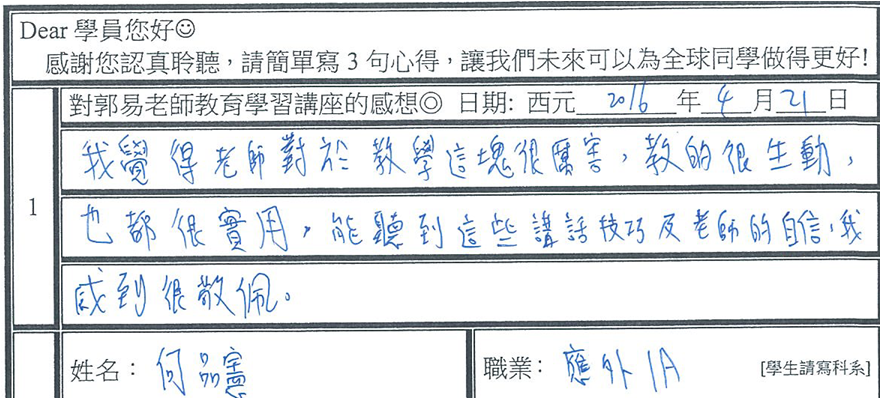 Dear 學員您好☺
感謝您認真聆聽，請簡單寫 3 句心得，讓我們未來可以為全球同學做得更好!
對郭易老師教育學習講座的感想◎ 日期: 西元 2016 年 4 月 21 日
1
我覺得老師對於教學這塊很厲害，教的很生動，
也都很實用，能聽到這些講話技巧及老師的自信，我
感到很敬佩。
姓名：何品憲 職業：應外1A [學生請寫科系]